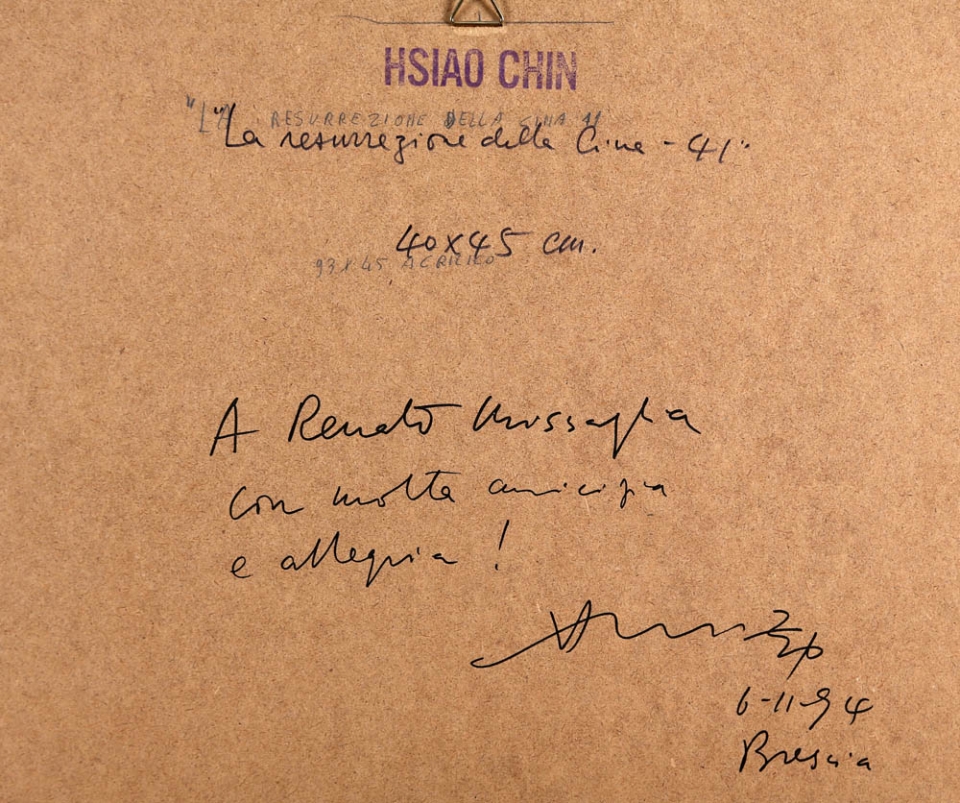 HSIAO CHIN
"LA RESURREZIONE DELLA CINA 41
"La resurrezione della Cina - 41"
40x45 cm.
93 x 45 ACRILICO
A Renato Missaglia
con molta amicizia
e allegria !
6-11-94
Brescia